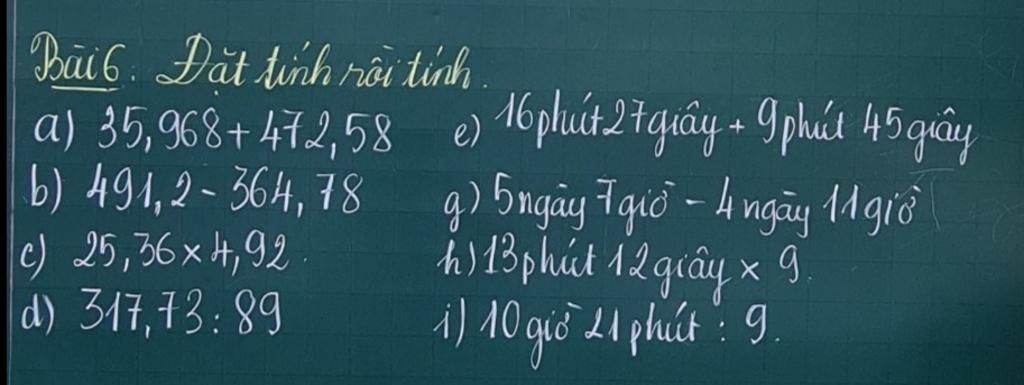 Bài 6: Đặt tính rồi tính.
a) 35,968 + 472,58
b) 491,2 - 364,78
c) 25,36 x 4,92.
d) 317,73 : 89
e) 16 phút 27 giây + 9 phút 45 giây
g) 5 ngày 7 giờ - 4 ngày 11 giờ
h) 13 phút 12 giây x 9.
i) 10 giờ 21 phút : 9.